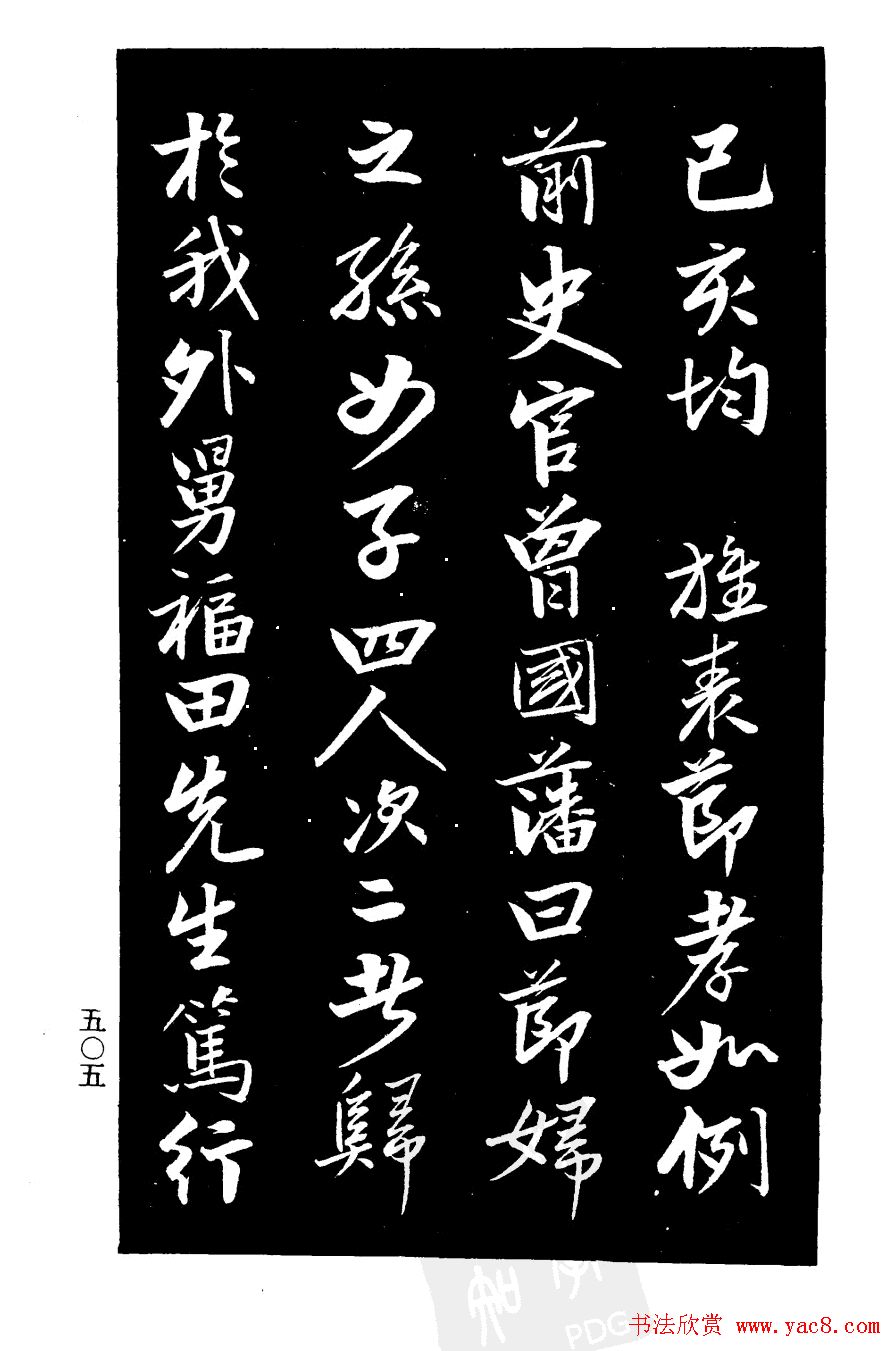 己亥均 旌表節孝如例
前史官曾國藩曰節婦
之孫女子四人次二者歸
於我外舅福田先生篤行
五〇五
PDG
书法欣赏 www.yac8.com